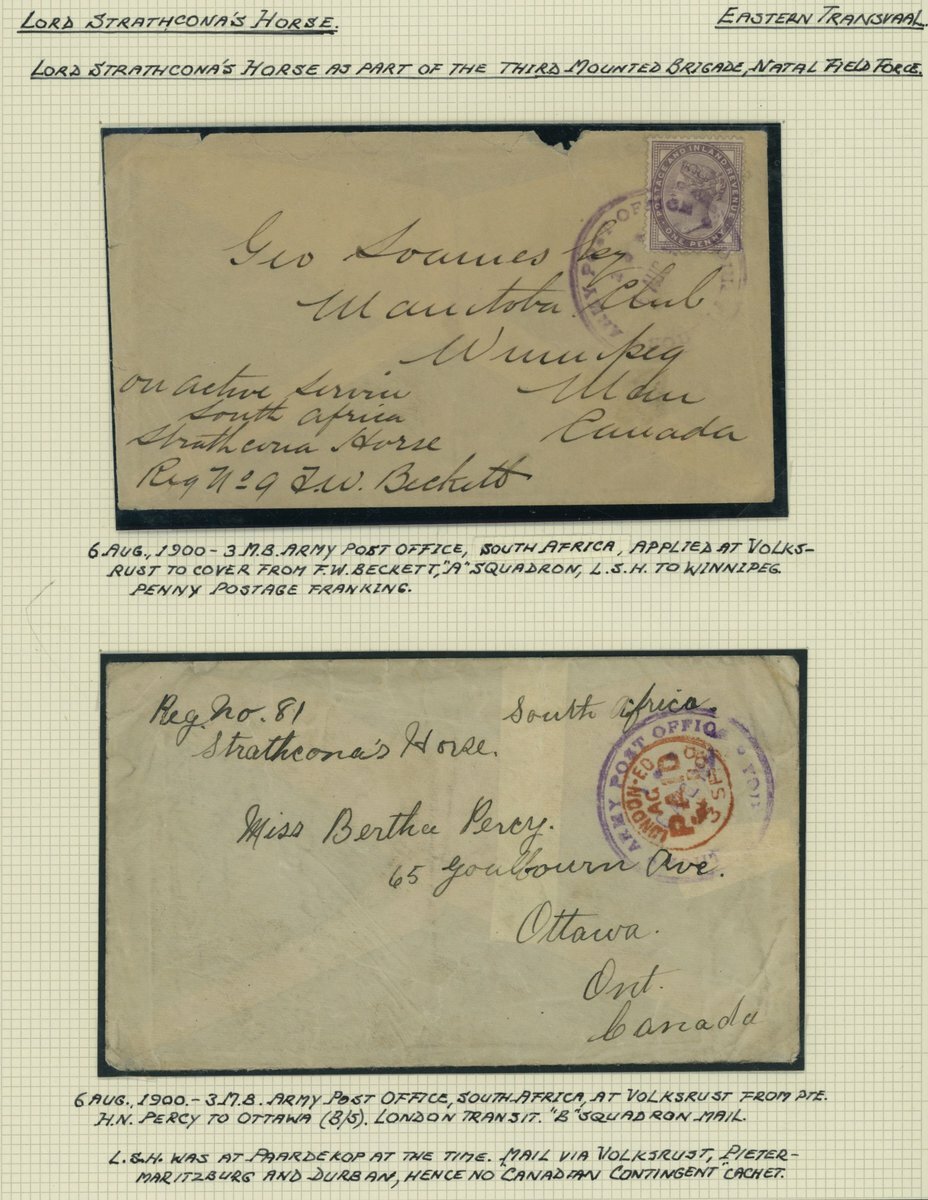 LORD STRATHCONA'S HORSE.
EASTERN TRANSVAAL.
LORD STRATHCONA'S HORSE AS PART OF THE THIRD MOUNTED BRIGADE, NATAL FIELD FORCE.
POSTAGE AND INLAND REVENUE
ONE PENNY
ARMY POST OF
Geo Soames Esq
Manitoba Club
Winnipeg
Man
Canada
on active service
South Africa
Strathcona Horse
Reg No 9 F.W. Beckett
6 AUG., 1900 - 3 M.B. ARMY POST OFFICE, SOUTH AFRICA, APPLIED AT VOLKS-
RUST TO COVER FROM F.W. BECKETT, "A" SQUADRON, L.S.H. TO WINNIPEG.
PENNY POSTAGE FRANKING.
Reg. No. 81
South Africa.
Strathcona's Horse.
ARMY POST OFFICE
LONDON·E.D
PAID
Miss Bertha Percy.
65 Goulbourn Ave.
Ottawa.
Ont.
Canada
6 AUG., 1900. - 3 M.B. ARMY POST OFFICE, SOUTH AFRICA, AT VOLKSRUST FROM PTE.
H.N. PERCY TO OTTAWA (B/S). LONDON TRANSIT. "B" SQUADRON MAIL.
L.S.H. WAS AT PAARDEKOP AT THE TIME. MAIL VIA VOLKSRUST, PIETER-
MARITZBURG AND DURBAN, HENCE NO "CANADIAN CONTINGENT" CACHET.